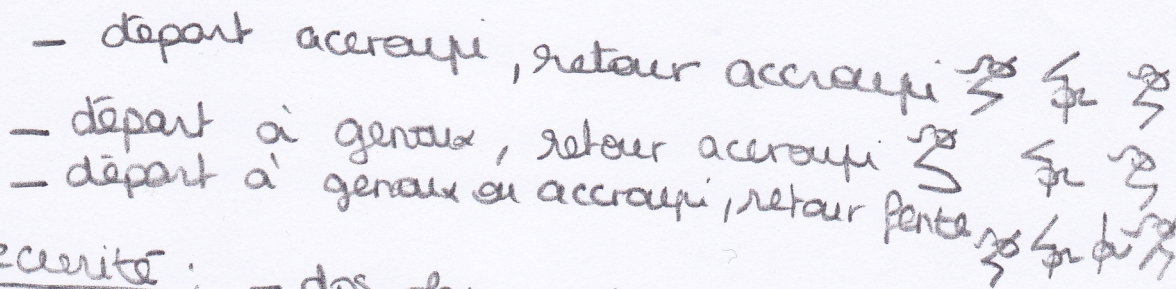 - départ accroupi, retour accroupi
- départ à genoux, retour accroupi
- départ à genoux ou accroupi, retour fente
écurité : - dos